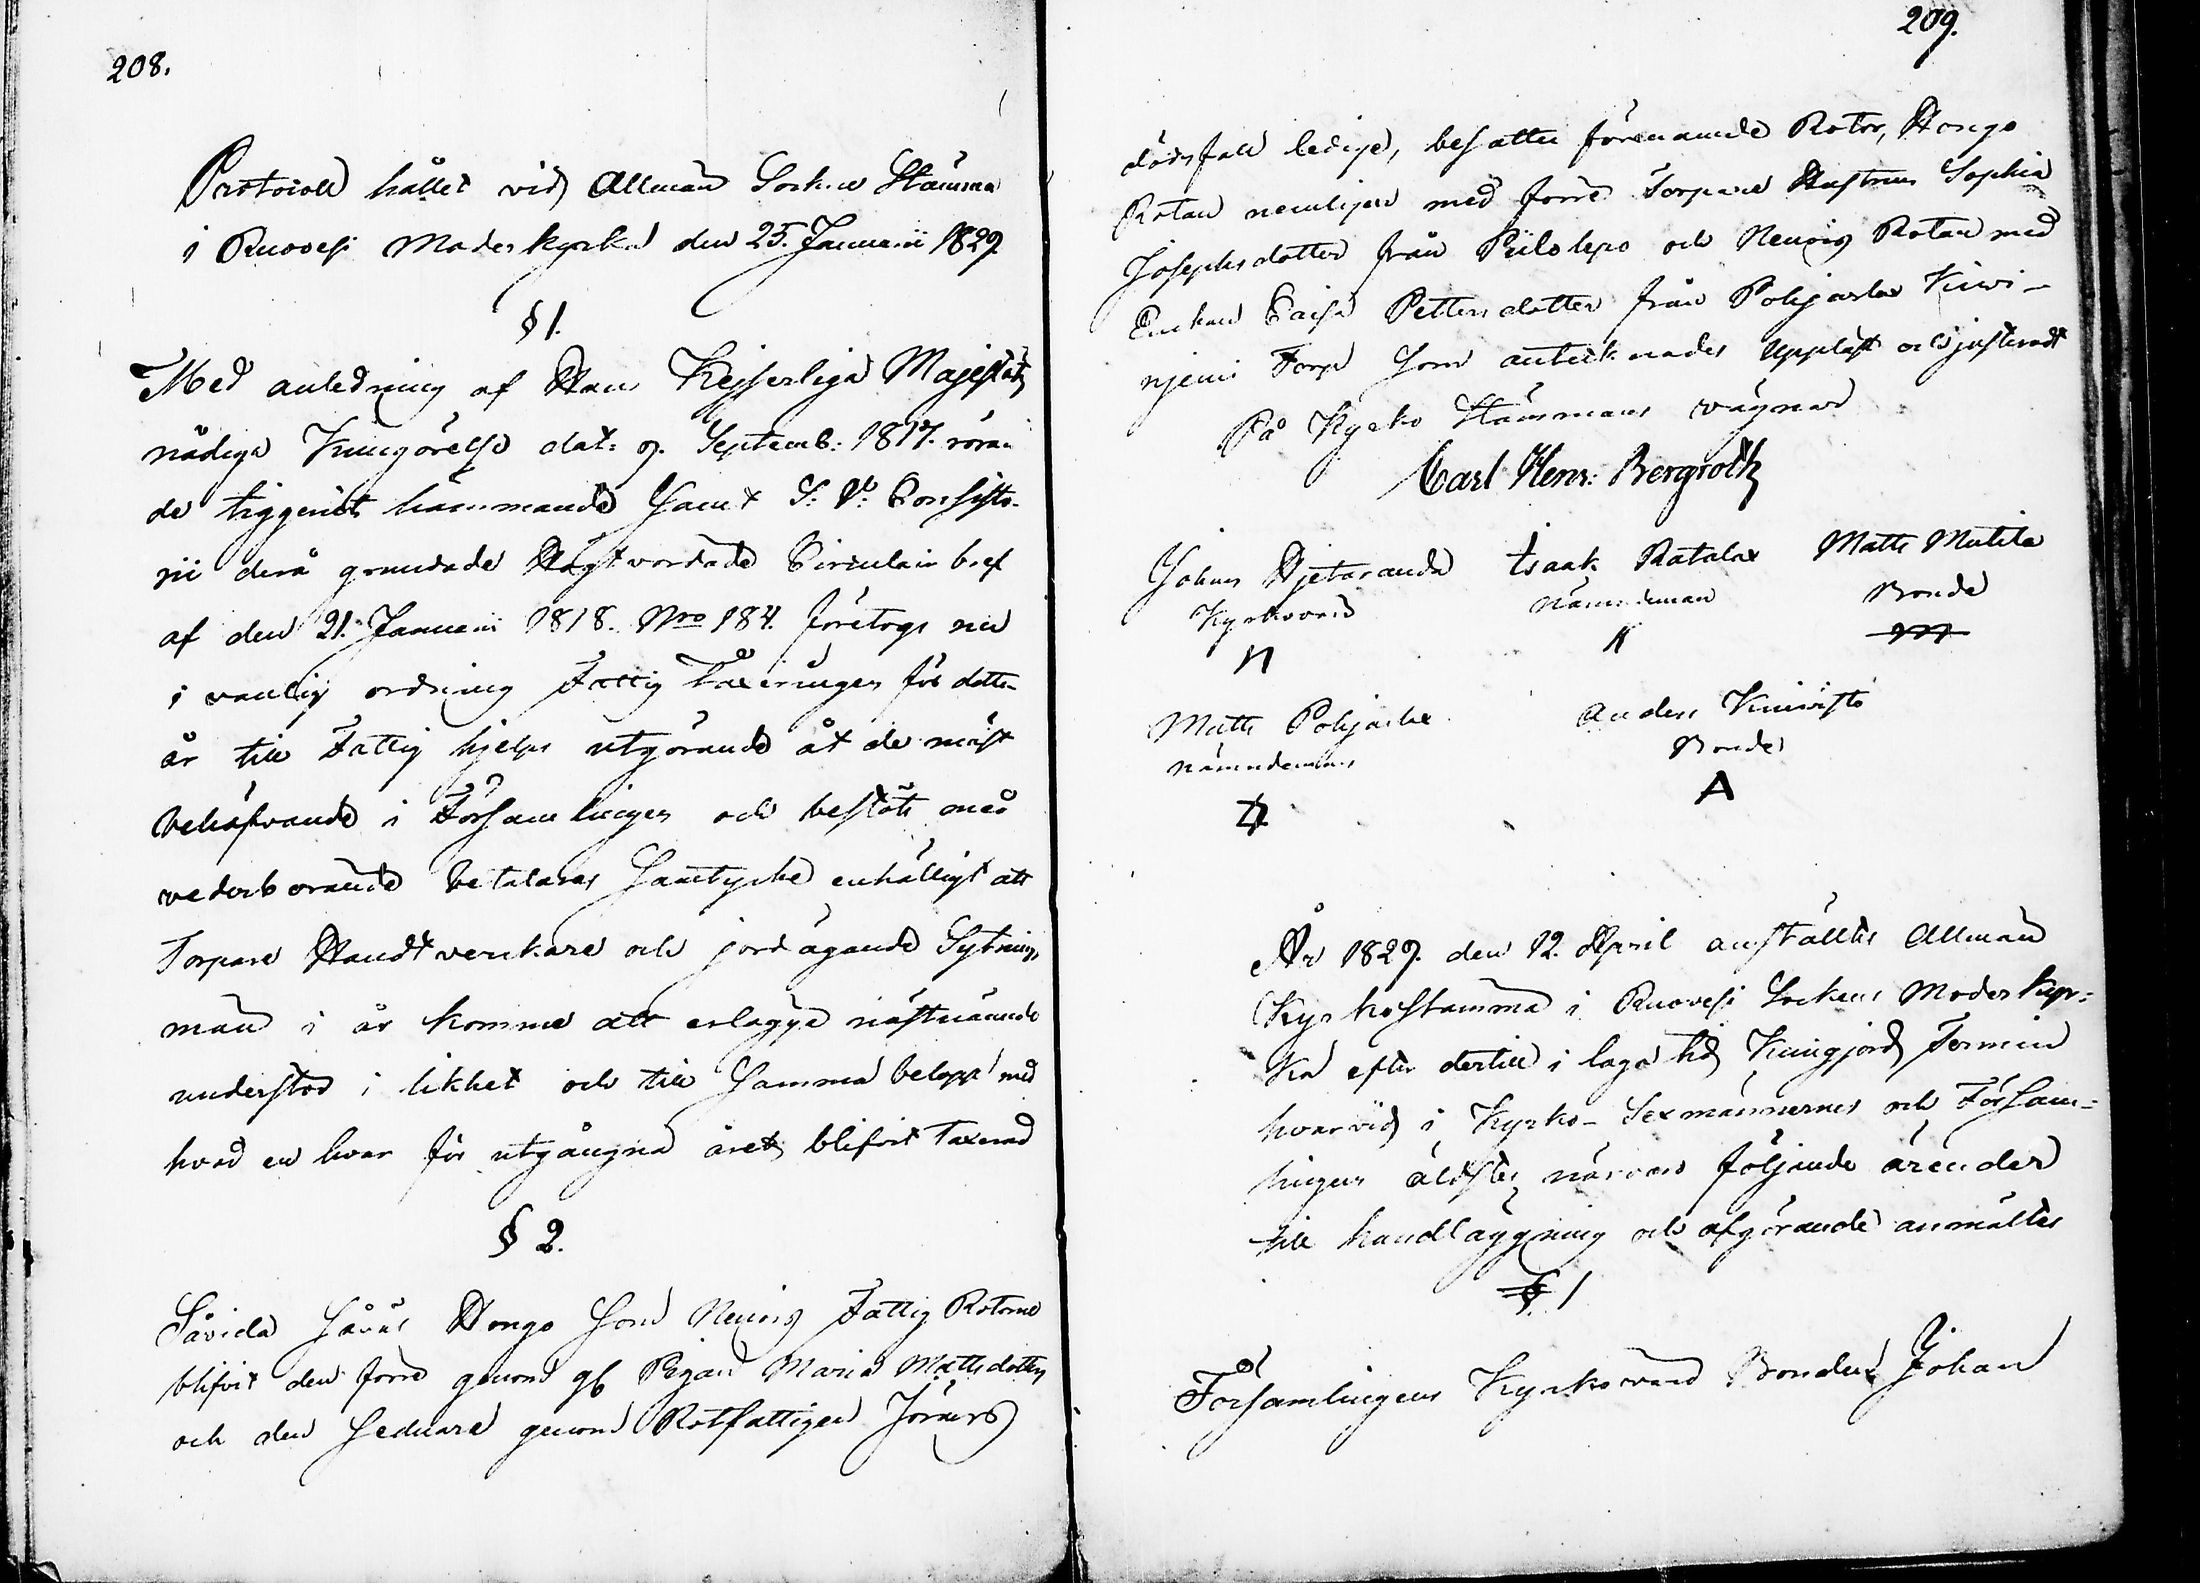 208.
Protocoll hållet vid Allmän Sockne Stämma
i Ruovesi Moderkyrka den 25. Januarii 1829.
§ 1.
Med anledning af Hans Kejserliga Majestäts
nådiga Kungörelse dat: 9. Septemb: 1817. röran
de tiggeriets hämmande samt S: V: Consisto-
rii derå grundade Högtvördade Circulair bref
af den 21. Januarii 1818. Nro 184. företogs nu
i vanlig ordning Fattig Taxeringen för detta
år till Fattig hjelps utgörande åt de mäst
behöfvande i Församlingen och beslöts med
vederbörande betalares Samtycke enhälligt att
Torpare Handtverkare och jord ägande Sytnings
män i år komma att erlägga nästnämnde
understöd i likhet och till samma belopp med
hvad en hvar för utgångna året blifvit Taxerad
§ 2.
Såvida såväl Hongo som Neuvis Fattig Rotorne
blifvit den förre genom gl Pigan Maria Mattsdotters
och den sednare genom Rotfattigen Jörans
209.
dödsfall ledige, besattes förenämde Rotor, Hongo
Rotan nemligen med förre Torpare Hustrun Sophia
Josephsdotter från Piilolepo och Neuvis Rotan med
Enkan Caisa Pettersdotter från Pohjaslax Kiwi-
njemi Torp som antecknades Uppläst och justeradt
På Kyrko Stämmans vägnar
Carl Henr: Bergroth
Johan Hjetaranda Isaak Ratalax Matts Mutila
Kyrkovärd Nämndeman Bonde
Matts Pohjaslax Anders Kuivisto
Nämndeman Bonde
A
År 1829. den 12. April anställtes Allmän
Kyrkostämma i Ruovesi Sockens Moderkyr-
ka efter dertill i laga tid Kungjord Termin
hvarvid i Kyrko-Sexmännernes och Försam-
lingens äldstes närvaro följande ärender
till handläggning och afgörande anmältes
§. 1
Församlingens Kyrkovärd Bonden Johan